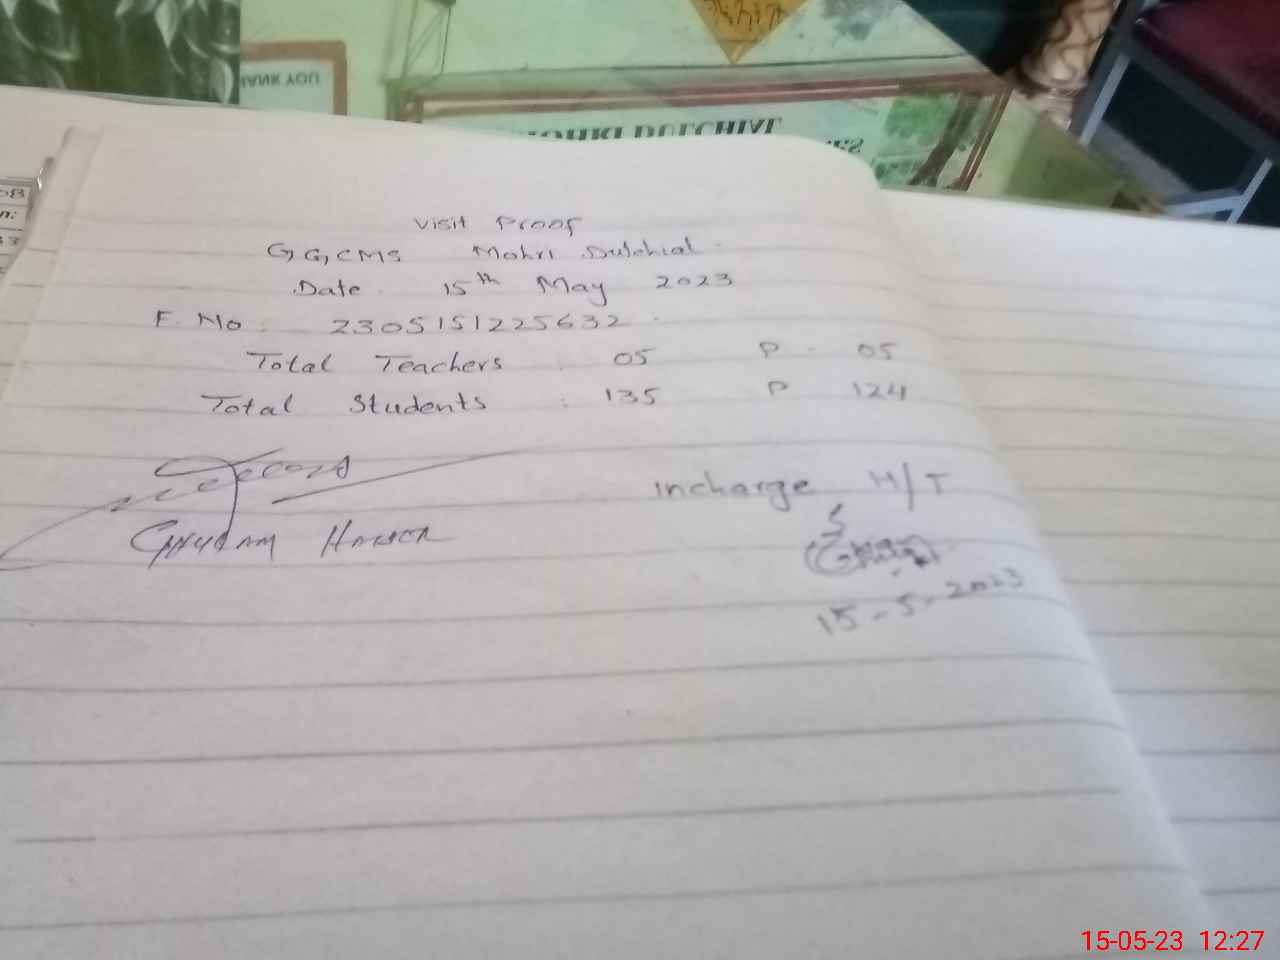 ANK YOU
MOHRI DULCHIAL
Visit Proof
G,G,CMS Mohri Dulchial
Date 15th May 2023
F. No : 2305151225632
Total Teachers : 05 P. 05
Total Students : 135 P 124
Incharge H/T
GHULAM
15-5-2023
15-05-23 12:27